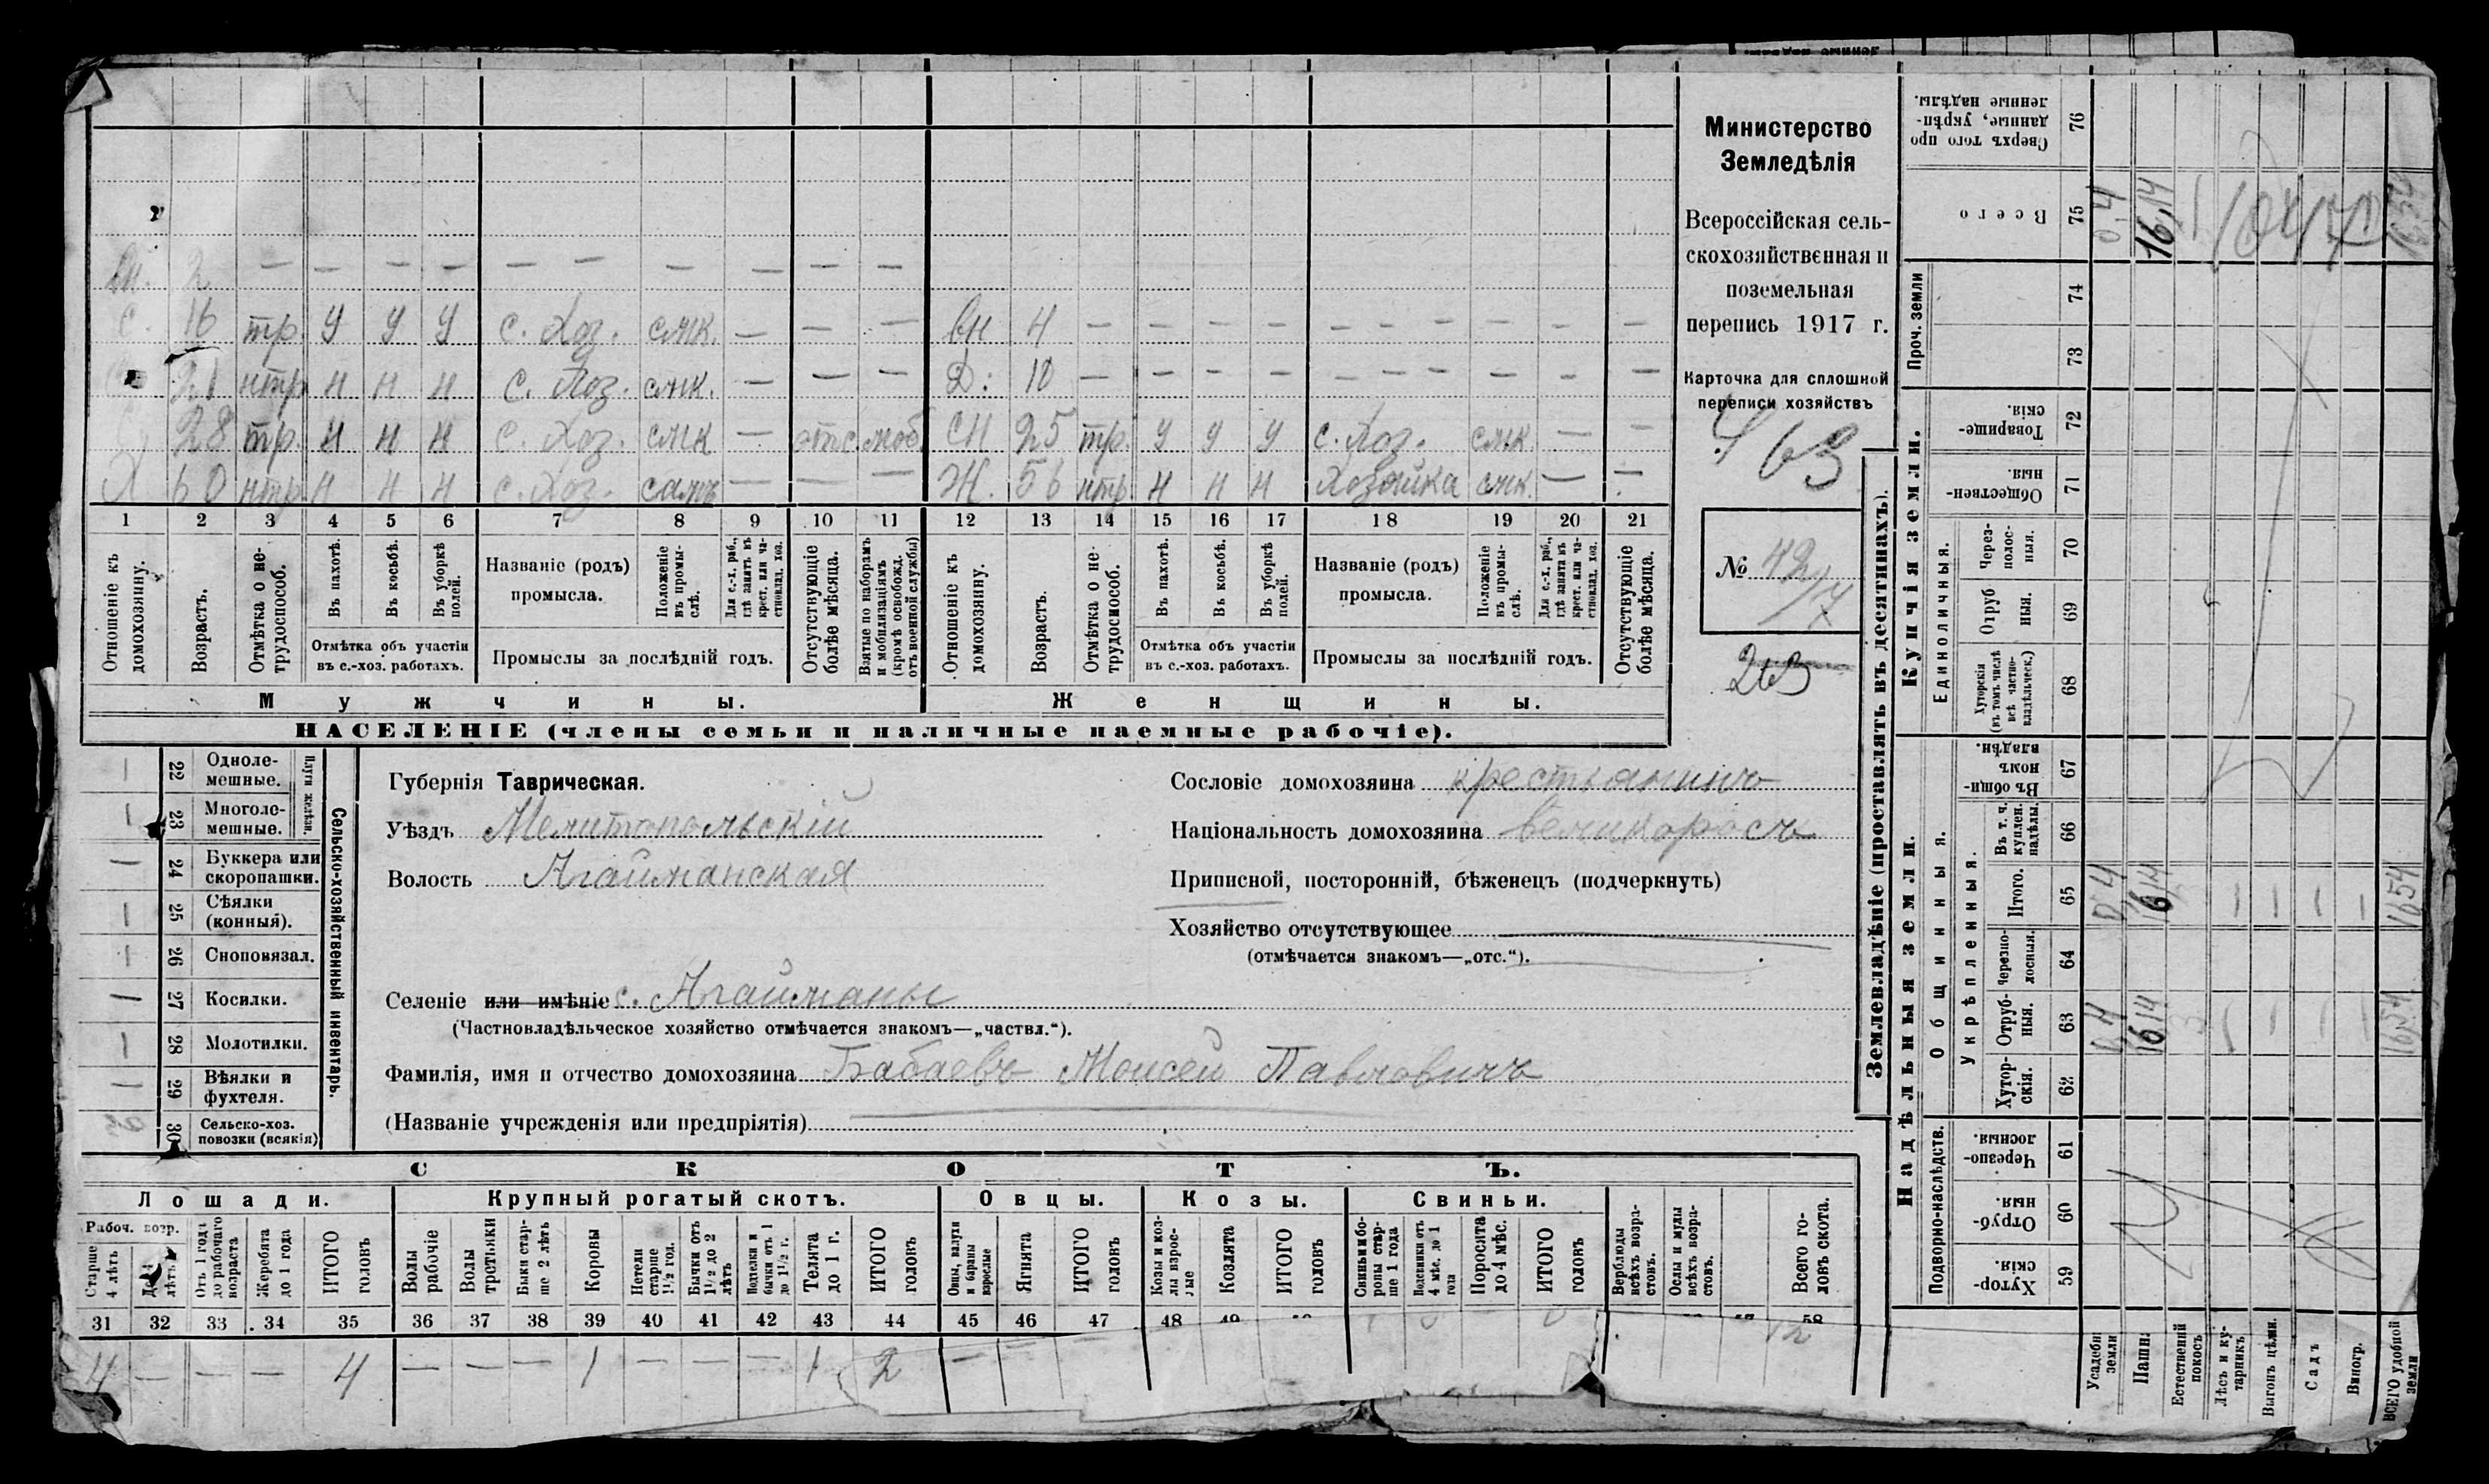 Вн. 2 — — — — — — — — — —
С. 16 тр. у у у с. Хоз. смк. — — — вн 4 — — — — — — — — — —
21 нтр н н н с. Хоз. смк. — — — Д: 10 — — — — — — — — — —
28 тр. н н н с. Хоз. смк — отс. моб. сн 25 тр. у у у с. Хоз. смк — —
Х 60 нтр н н н с. Хоз. самъ — — — Ж. 56 нтр н н н Хозяйка смк. — —
1 2 3 4 5 6 7 8 9 10 11 12 13 14 15 16 17 18 19 20 21
Отношеніе къ домохозяину.
Возрастъ.
Отмѣтка о не-
трудоспособ.
Въ пахотѣ.
Въ косьбѣ.
Въ уборкѣ
полей.
Отмѣтка объ участіи
въ с.-хоз. работахъ.
Названіе (родъ)
промысла.
Положеніе
въ промы-
слѣ.
Для с.-х. раб.,
гдѣ занятъ въ
крест. или ча-
стновлад. хоз.
Промыслы за послѣдній годъ.
Отсутствующіе
болѣе мѣсяца.
Взятые по наборамъ
и мобилизаціямъ
(кромѣ освобожд.
отъ военной службы)
Отношеніе къ
домохозяину.
Возрастъ.
Отмѣтка о не-
трудоспособ.
Въ пахотѣ.
Въ косьбѣ.
Въ уборкѣ
полей.
Отмѣтка объ участіи
въ с.-хоз. работахъ.
Названіе (родъ)
промысла.
Положеніе
въ промы-
слѣ.
Для с.-х. раб.,
гдѣ занята въ
крест. или ча-
стновлад. хоз.
Промыслы за послѣдній годъ.
Отсутствующіе
болѣе мѣсяца.
Мужчины.
Женщины.
НАСЕЛЕНІЕ (члены семьи и наличные наемные рабочіе).
Министерство
Земледѣлія
Всероссійская сель-
скохозяйственная и
поземельная
перепись 1917 г.
Карточка для сплошной
переписи хозяйствъ
463
№ 42/7
263
Сельско-хозяйственный инвентарь.
Плуги желѣзн.
22 Одноле-
мешные.
23 Многоле-
мешные.
24 Буккера или
скоропашки.
25 Сѣялки
(конныя).
26 Сноповязал.
27 Косилки.
28 Молотилки.
29 Вѣялки и
фухтеля.
30 Сельско-хоз.
повозки (всякія)
Губернія Таврическая.
Уѣздъ Мелитопольскій
Волость Агайманская
Селеніе или имѣніе с. Агайманы
(Частновладѣльческое хозяйство отмѣчается знакомъ—„частвл.“).
Фамилія, имя и отчество домохозяина Бабаевъ Моисей Павловичъ
(Названіе учрежденія или предпріятія)
Сословіе домохозяина крестьянинъ
Національность домохозяина великоросъ
Приписной, посторонній, бѣженецъ (подчеркнуть)
Хозяйство отсутствующее
(отмѣчается знакомъ—„отс.“).
СКОТЪ.
Лошади. Крупный рогатый скотъ. Овцы. Козы. Свиньи.
Рабоч. возр.
Старше
4 лѣтъ
Отъ 1 года
до рабочаго
возраста
Жеребята
до 1 года
ИТОГО
головъ
Волы
рабочіе
Волы
третьяки
Быки стар-
ше 2 лѣтъ
Коровы
Нетели
старше
1½ год.
Бычки отъ
1½ до 2
лѣтъ
Подтелки и
бычки отъ 1
до 1½ г.
Телята
до 1 г.
ИТОГО
головъ
Овцы, валухи
и бараны
взрослые
Ягнята
ИТОГО
головъ
Козы и коз-
лы взрос-
лые
Козлята
ИТОГО
головъ
Свиньи и бо-
ровы стар-
ше 1 года
Подсвинки отъ
4 мѣс. до 1
года
Поросята
до 4 мѣс.
ИТОГО
головъ
Верблюды
всѣхъ возра-
стовъ.
Ослы и мулы
всѣхъ возра-
стовъ.
Всего го-
ловъ скота.
31 32 33 34 35 36 37 38 39 40 41 42 43 44 45 46 47 48 49 58
4 — — — 4 — — — 1 — — — 1 2 — —
12
Землевладѣніе (проставлять въ десятинахъ).
Купчія земли.
Надѣльныя земли.
Сверхъ того про
данные, укрѣп-
ленные надѣлы. 76
Всего 75
Проч. земли 74 73
Товарище-
скія. 72
Обществен-
ныя. 71
Единоличныя.
Через-
полос-
ныя. 70
Отруб
ныя. 69
Хуторскія
(въ томъ числѣ
всѣ частно-
владѣльческ.) 68
Общинныя.
Въ общин-
номъ
владѣн. 67
Укрѣпленныя.
Въ т. ч.
куплен.
надѣлы. 66
Итого. 65
Черезпо-
лосныя. 64
Отруб-
ныя. 63
Хутор-
скія. 62
Подворно-наслѣдств.
Черезпо-
лосныя. 61
Отруб-
ныя. 60
Хутор-
скія. 59
Усадебн.
земли 04 04 04
Пашня 16,14 16,14 16,14
Естественный
покосъ
Лѣсъ и ку-
старникъ
Выгонъ цѣлин.
Садъ
Виногр.
ВСЕГО удобной
земли 1654 1654 1654